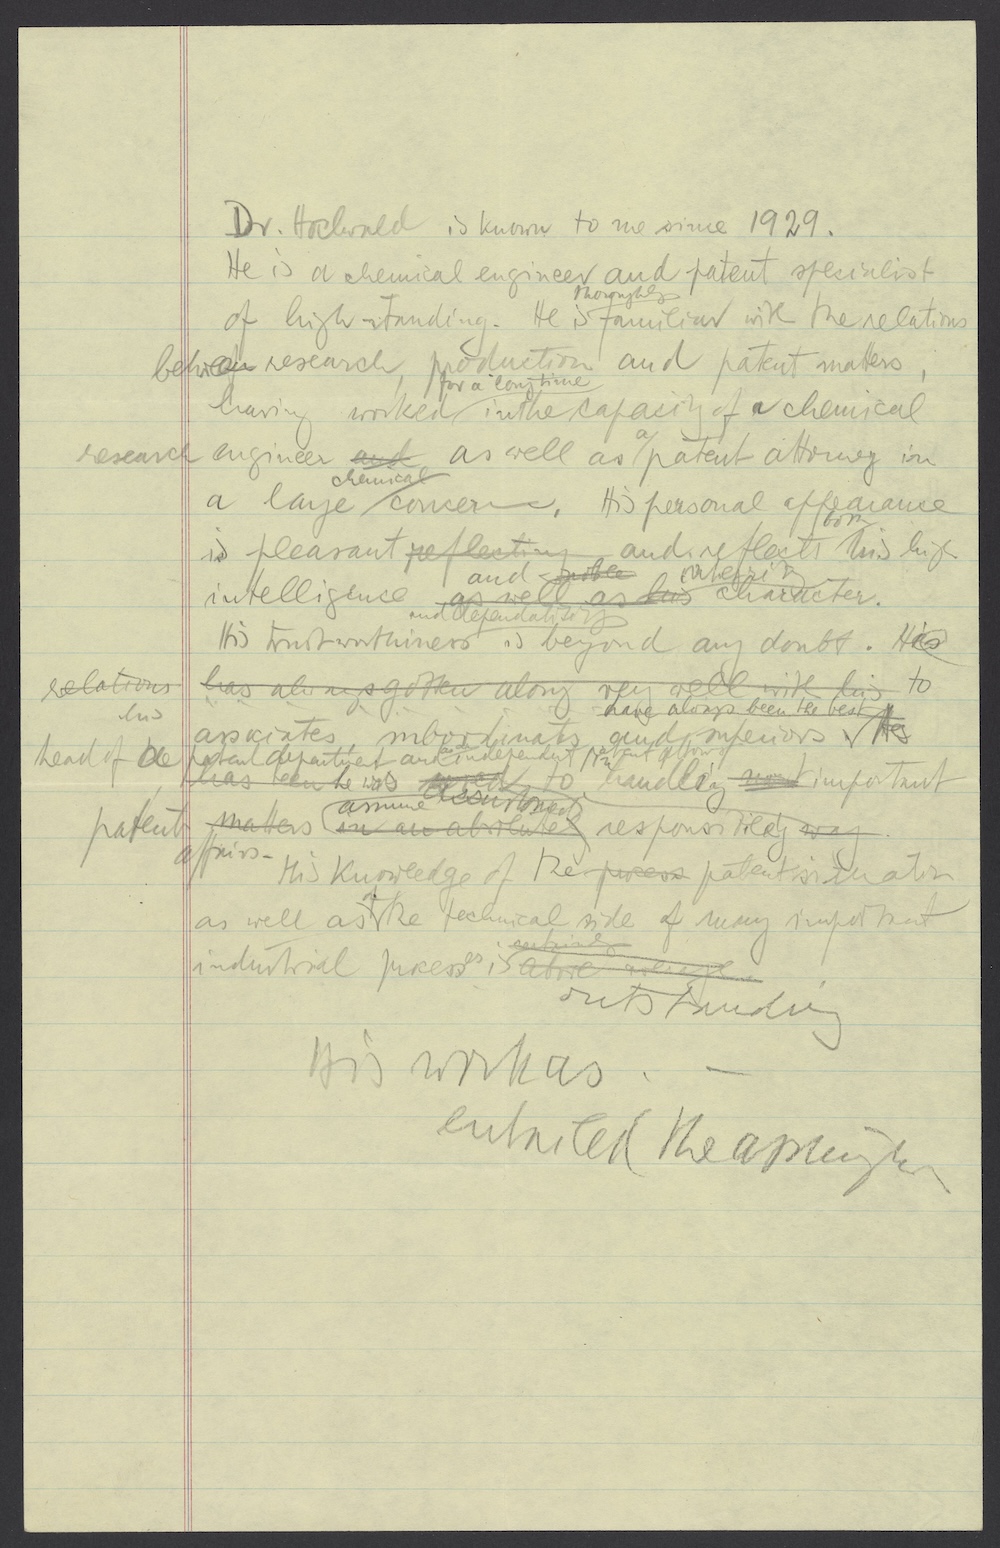 Dr. Hochwald is known to me since 1929.
He is a chemical engineer and patent specialist
thoroughly
of high standing. He is familiar with the relations
between research, production and patent matters,
for a long time
having worked in the capacity of a chemical
a
research engineer and as well as patent attorney in
chemical
a large concern. His personal appearance
both
is pleasant reflecting and reflects his high
and noble integrity
intelligence as well as his character.
and dependability
His trustworthiness is beyond any doubt. His
relations has always gotten along very well with his to
his have always been the best
associates, subordinates and superiors. As
head of the patent department and as independent patent attorney
has been he was to handling important
assume accustomed
patent matters in an absolutely responsibility way.
affairs.
His Knowledge of the process patent situation
of
as well as the technical side of many important
certainly
industrial processes is above average
outstanding
His work as . —
entailed the